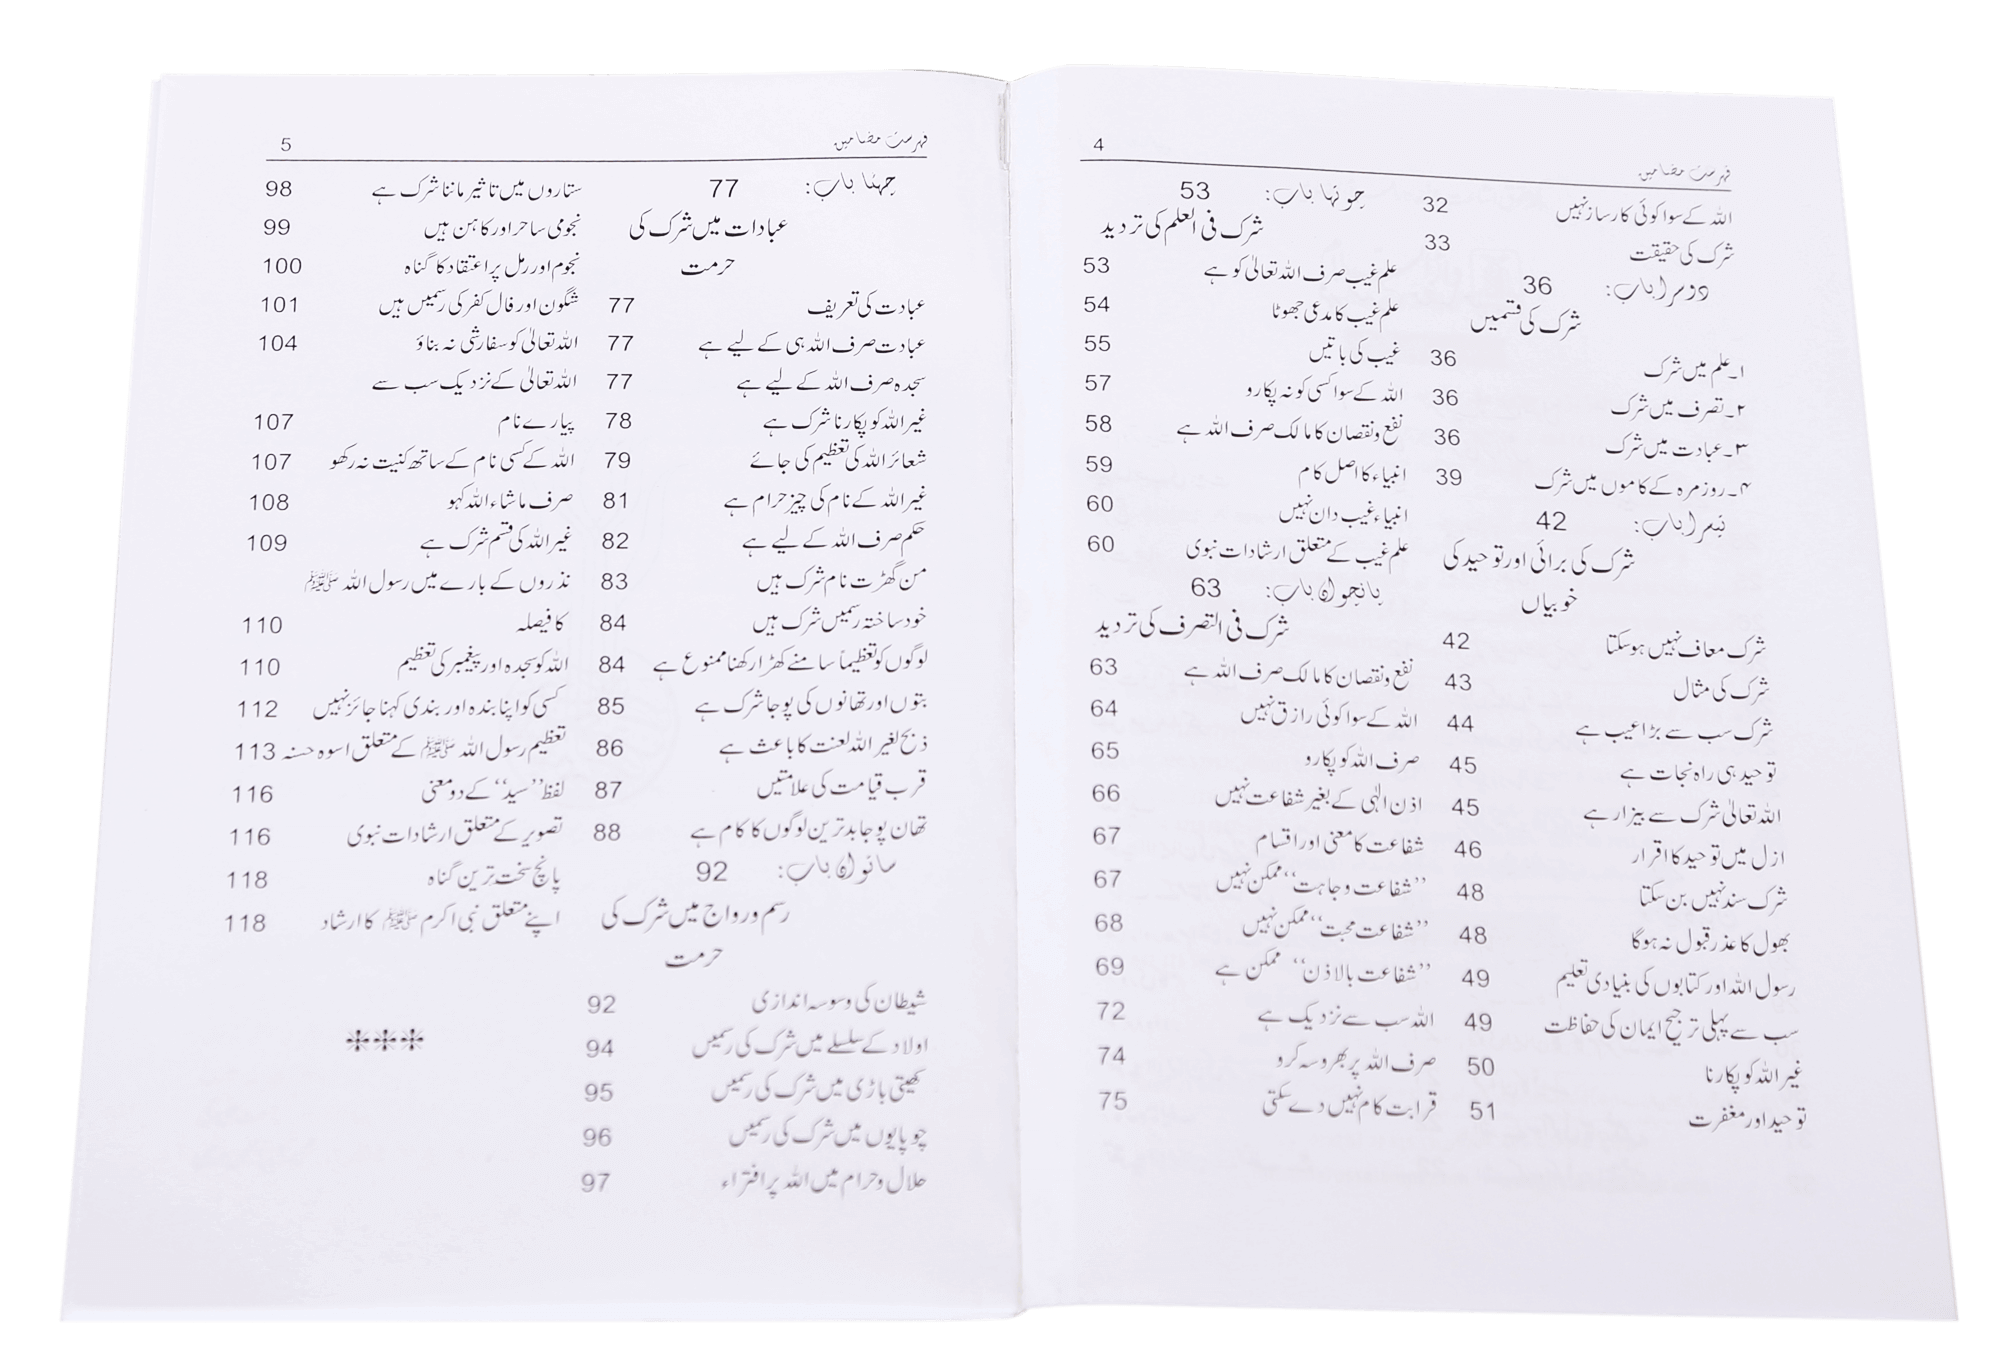 فہرست مضامین 4
اللہ کے سوا کوئی کارساز نہیں 32
شرک کی حقیقت 33
دوسرا باب: 36
شرک کی قسمیں
۱۔ علم میں شرک 36
۲۔ تصرف میں شرک 36
۳۔ عبادت میں شرک 36
۴۔ روزمرہ کے کاموں میں شرک 39
تیسرا باب: 42
شرک کی برائی اور توحید کی
خوبیاں
شرک معاف نہیں ہوسکتا 42
شرک کی مثال 43
شرک سب سے بڑا عیب ہے 44
توحید ہی راہ نجات ہے 45
اللہ تعالیٰ شرک سے بیزار ہے 45
ازل میں توحید کا اقرار 46
شرک سند نہیں بن سکتا 48
بھول کا عذر قبول نہ ہوگا 48
رسول اللہ اور کتابوں کی بنیادی تعلیم 49
سب سے پہلی ترجیح ایمان کی حفاظت 49
غیر اللہ کو پکارنا 50
توحید اور مغفرت 51
چوتھا باب: 53
شرک فی العلم کی تردید
علم غیب صرف اللہ تعالیٰ کو ہے 53
علم غیب کا مدعی جھوٹا 54
غیب کی باتیں 55
اللہ کے سوا کسی کو نہ پکارو 57
نفع و نقصان کا مالک صرف اللہ ہے 58
انبیاء کا اصل کام 59
انبیاء غیب دان نہیں 60
علم غیب کے متعلق ارشادات نبوی 60
پانچواں باب: 63
شرک فی التصرف کی تردید
نفع و نقصان کا مالک صرف اللہ ہے 63
اللہ کے سوا کوئی رازق نہیں 64
صرف اللہ کو پکارو 65
اذن الٰہی کے بغیر شفاعت نہیں 66
شفاعت کا معنی اور اقسام 67
’’شفاعت وجاہت‘‘ ممکن نہیں 67
’’شفاعت محبت‘‘ ممکن نہیں 68
’’شفاعت بالاذن‘‘ ممکن ہے 69
اللہ سب سے نزدیک ہے 72
صرف اللہ پر بھروسہ کرو 74
قرابت کام نہیں دے سکتی 75
فہرست مضامین 5
چھٹا باب: 77
عبادات میں شرک کی
حرمت
عبادت کی تعریف 77
عبادت صرف اللہ ہی کے لیے ہے 77
سجدہ صرف اللہ کے لیے ہے 77
غیر اللہ کو پکارنا شرک ہے 78
شعائر اللہ کی تعظیم کی جائے 79
غیر اللہ کے نام کی چیز حرام ہے 81
حکم صرف اللہ کے لیے ہے 82
من گھڑت نام شرک ہیں 83
خود ساختہ رسمیں شرک ہیں 84
لوگوں کو تعظیماً سامنے کھڑا رکھنا ممنوع ہے 84
بتوں اور تھانوں کی پوجا شرک ہے 85
ذبح لغیر اللہ لعنت کا باعث ہے 86
قرب قیامت کی علامتیں 87
تھان پوجا بدترین لوگوں کا کام ہے 88
ساتواں باب: 92
رسم و رواج میں شرک کی
حرمت
شیطان کی وسوسہ اندازی 92
اولاد کے سلسلے میں شرک کی رسمیں 94
کھیتی باڑی میں شرک کی رسمیں 95
چوپایوں میں شرک کی رسمیں 96
حلال و حرام میں اللہ پر افتراء 97
ستاروں میں تاثیر ماننا شرک ہے 98
نجومی ساحر اور کاہن ہیں 99
نجوم اور رمل پر اعتقاد کا گناہ 100
شگون اور فال کفر کی رسمیں ہیں 101
اللہ تعالیٰ کو سفارشی نہ بناؤ 104
اللہ تعالیٰ کے نزدیک سب سے
پیارے نام 107
اللہ کے کسی نام کے ساتھ کنیت نہ رکھو 107
صرف ماشاء اللہ کہو 108
غیر اللہ کی قسم شرک ہے 109
نذروں کے بارے میں رسول اللہ ﷺ
کا فیصلہ 110
اللہ کو سجدہ اور پیغمبر کی تعظیم 110
کسی کو اپنا بندہ اور بندی کہنا جائز نہیں 112
تعظیم رسول اللہ ﷺ کے متعلق اسوہ حسنہ 113
لفظ ’’سید‘‘ کے دو معنی 116
تصویر کے متعلق ارشادات نبوی 116
پانچ سخت ترین گناہ 118
اپنے متعلق نبی اکرم ﷺ کا ارشاد 118